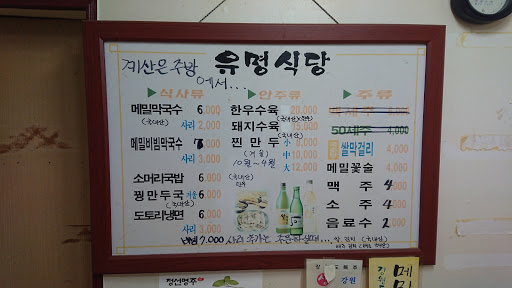 계산은 주방에서...
유명식당
▶식사류
메밀막국수 6,000
(국내산) 사리 2,000
메밀비빔막국수 7,000
사리 3,000
소머리국밥 6,000
꿩만두국 겨울 6,000
(국내산)
도토리냉면 6,000
사리 3,000
▶안주류
한우수육 20,000
(국내산)
돼지수육 15,000
(국내산)
찐만두 小 8,000
(겨울) 中 10,000
10월~4월 大 12,000
(국내산)
▶주류
50세주 4,000
쌀막걸리 4,000
메밀꽃술 4,000
맥주 4,000
소주 4,000
음료수 2,000
냉면 7.000 사리 추가는 주문하실때...
정선명주
강원